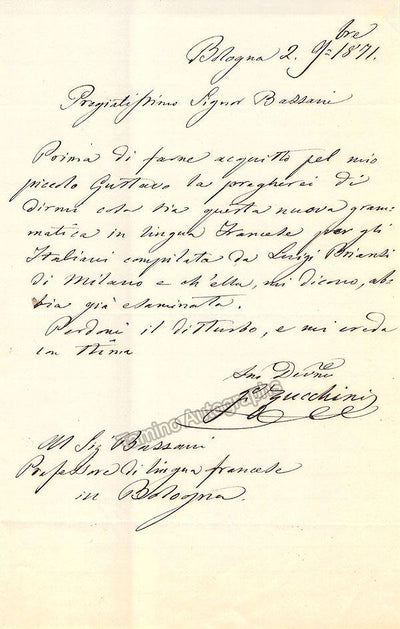 Bologna 2. 9bre 1871.
Pregiatissimo Signor Bassani
Prima di farne acquisto pel mio
piccolo Gustavo la pregherei di
dirmi cosa sia questa nuova gram=
matica in lingua Francese per gli
Italiani compilata da Luigi
di Milano e ch'ella, mi dicono, ab=
bia già esaminata.
Perdoni il disturbo, e mi creda
con stima
Suo Devmo
Zucchini
Al Sig Bassani
Professore di lingua francese
in Bologna.
Tamino Autographs